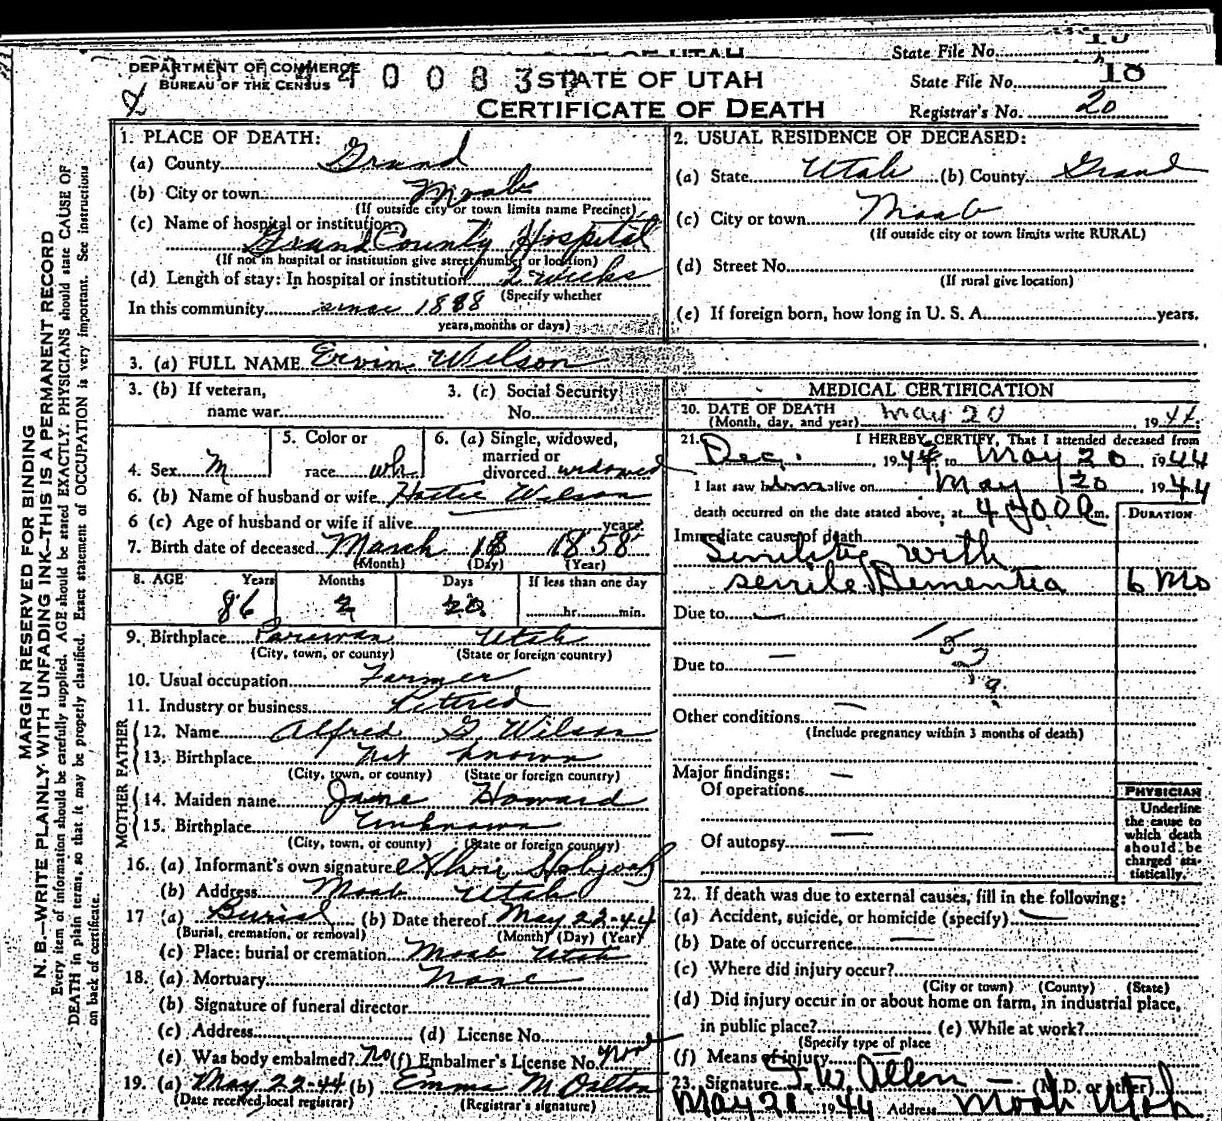 State File No.
DEPARTMENT OF COMMERCE
BUREAU OF THE CENSUS
STATE OF UTAH
State File No. 18
CERTIFICATE OF DEATH
Registrar's No. 20
1. PLACE OF DEATH:
(a) County Grand
(b) City or town Moab
(If outside city or town limits name Precinct)
(c) Name of hospital or institution
Grand County Hospital
(If not in hospital or institution give street number or location)
(d) Length of stay: In hospital or institution 2 weeks
(Specify whether
In this community since 1888
years, months or days)
2. USUAL RESIDENCE OF DECEASED:
(a) State Utah (b) County Grand
(c) City or town Moab
(If outside city or town limits write RURAL)
(d) Street No.
(If rural give location)
(e) If foreign born, how long in U. S. A. years.
3. (a) FULL NAME Ervin Wilson
3. (b) If veteran, name war
3. (c) Social Security No.
4. Sex M
5. Color or race wh
6. (a) Single, widowed, married or divorced widowed
6. (b) Name of husband or wife Hattie Wilson
6 (c) Age of husband or wife if alive years
7. Birth date of deceased March 18 1858
(Month) (Day) (Year)
8. AGE Years Months Days If less than one day
86 2 hr. min.
9. Birthplace Parowan Utah
(City, town, or county) (State or foreign country)
10. Usual occupation Farmer
11. Industry or business Retired
FATHER
12. Name Alfred G. Wilson
13. Birthplace Not known
(City, town, or county) (State or foreign country)
MOTHER
14. Maiden name Jane Howard
15. Birthplace Unknown
(City, town, or county) (State or foreign country)
16. (a) Informant's own signature
(b) Address Moab Utah
17 (a) Burial (b) Date thereof May 22-44
(Burial, cremation, or removal) (Month) (Day) (Year)
(c) Place: burial or cremation Moab Utah
18. (a) Mortuary None
(b) Signature of funeral director
(c) Address (d) License No.
(e) Was body embalmed? No (f) Embalmer's License No. none
19. (a) May 22-44 (b) Emma M Dalton
(Date received local registrar) (Registrar's signature)
MEDICAL CERTIFICATION
20. DATE OF DEATH May 20 1944
(Month, day, and year)
21. I HEREBY CERTIFY, That I attended deceased from
Dec. 194 to May 20 1944
I last saw him alive on May 20 1944
death occurred on the date stated above, at m.
DURATION
Immediate cause of death
Senility with
senile Dementia 6 Mo
Due to —
Due to —
Other conditions —
(Include pregnancy within 3 months of death)
Major findings: —
Of operations
Of autopsy —
PHYSICIAN
Underline the cause to which death should be charged statistically.
22. If death was due to external causes, fill in the following:
(a) Accident, suicide, or homicide (specify) —
(b) Date of occurrence —
(c) Where did injury occur?
(City or town) (County) (State)
(d) Did injury occur in or about home on farm, in industrial place,
in public place? (e) While at work?
(Specify type of place
(f) Means of injury
23. Signature J. W. Allen — (M.D. or other)
May 20 1944 Address Moab Utah
MARGIN RESERVED FOR BINDING
N. B.—WRITE PLAINLY WITH UNFADING INK—THIS IS A PERMANENT RECORD
Every item of information should be carefully supplied. AGE should be stated EXACTLY. PHYSICIANS should state CAUSE OF
DEATH in plain terms, so that it may be properly classified. Exact statement of OCCUPATION is very important. See instructions
on back of certificate.